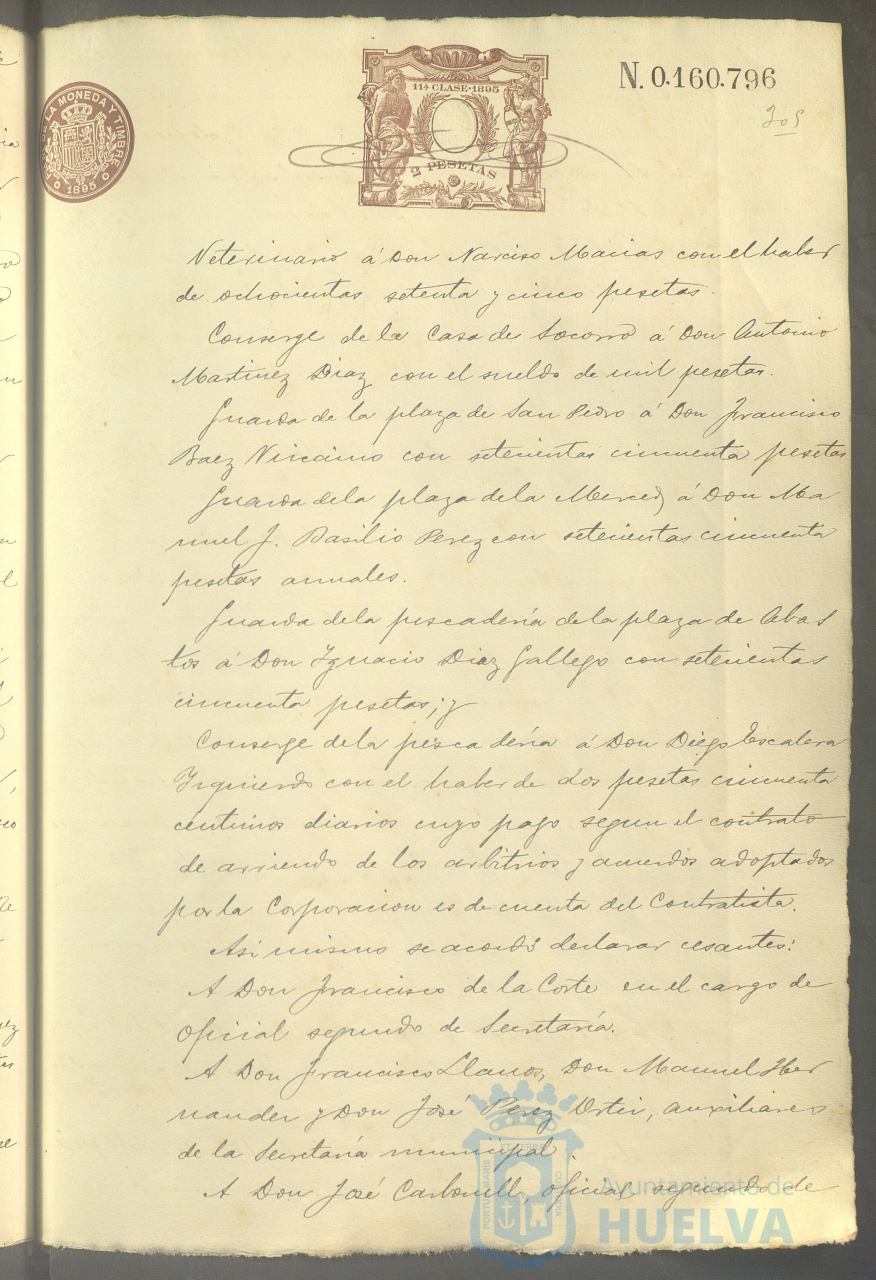 N. 0.160.796
305
11ª CLASE·1895
2 PESETAS
DE LA MONEDA Y TIMBRE
1895
Veterinario á Don Narciso Macias con el haber
de ochocientas setenta y cinco pesetas.
Conserge de la Casa de Socorro á Don Antonio
Martinez Diaz con el sueldo de mil pesetas.
Guarda de la plaza de San Pedro á Don Francisco
Baez con setecientas cincuenta pesetas
Guarda de la plaza de la Merced á Don Ma
nuel J. Basilio Perez con setecientas cincuenta
pesetas anuales.
Guarda de la pescadería de la plaza de Abas
tos á Don Ygnacio Diaz Gallego con setecientas
cincuenta pesetas; y
Conserge de la pescadería á Don Diego Escalera
Yzquierdo con el haber de dos pesetas cincuenta
centimos diarios cuyo pago segun el contrato
de arriendo de los arbitrios y acuerdos adoptados
por la Corporacion es de cuenta del Contratista.
Asi mismo se acordó declarar cesantes:
A Don Francisco de la Corte en el cargo de
Oficial segundo de Secretaría.
A Don Francisco Llanos, Don Manuel Her
nandez y Don José Perez auxiliares
de la Secretaría municipal.
A Don José Carbonell, oficial segundo de
Ayuntamiento de
HUELVA